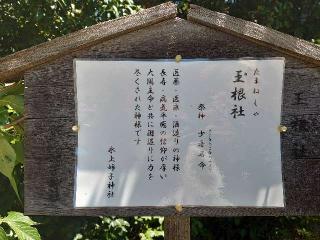 たまねしゃ
玉根社
祭神 少彦名命
医薬・医療・酒造りの神様
長寿・病気平癒の信仰が厚い
大国主命と共に国造りに力を
尽くされた神様です
氷上姉子神社